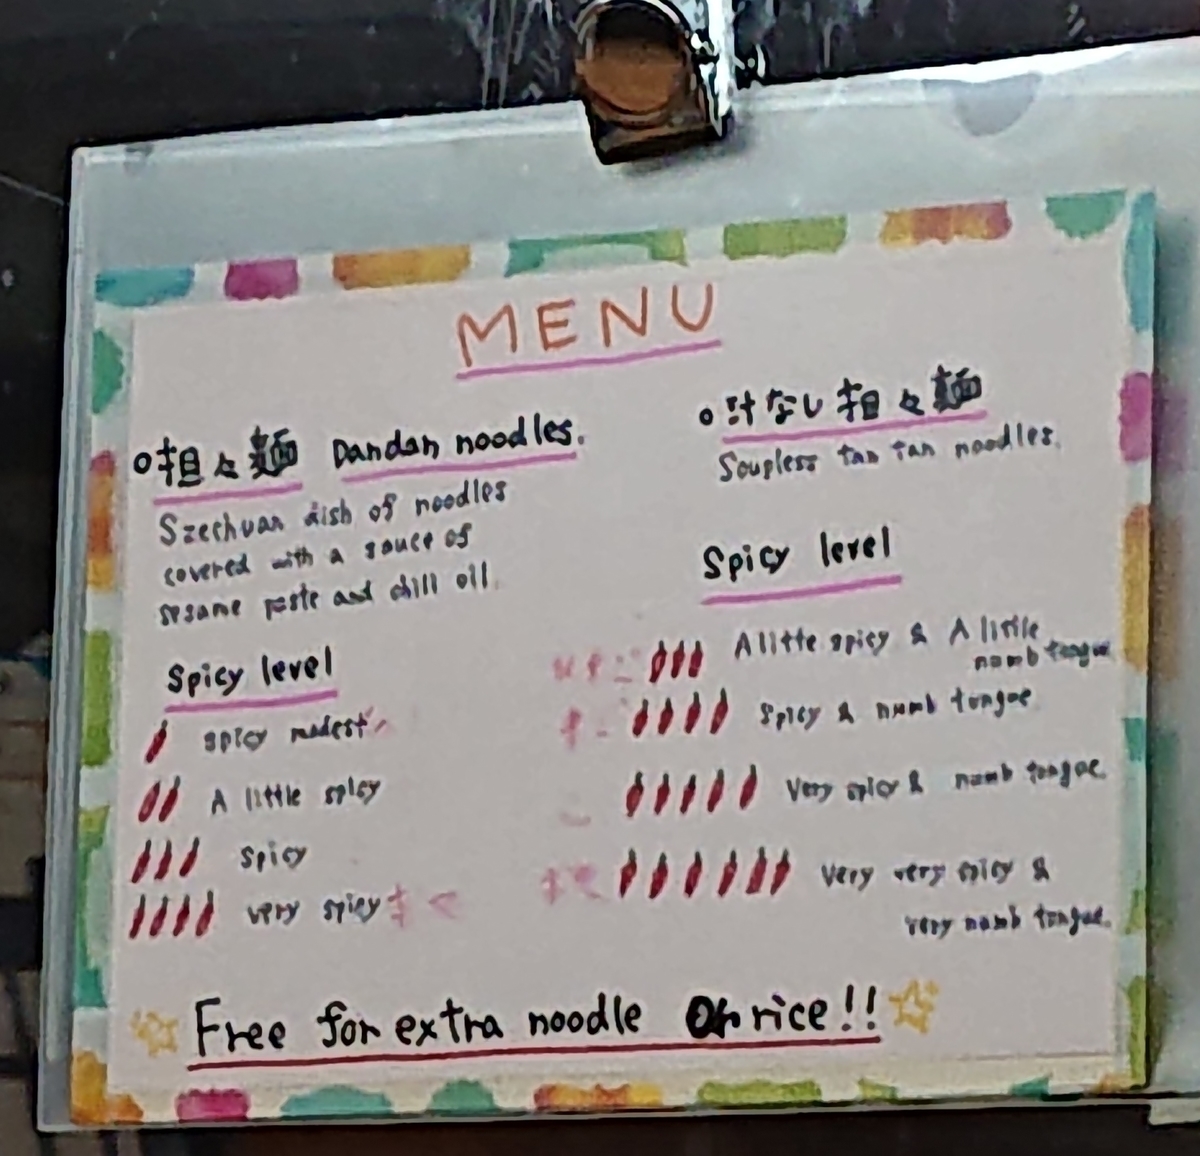 MENU
○担々麺 Dandan noodles.
Szechuan dish of noodles
covered with a sauce of
sesame paste and chill oil.
Spicy level
spicy modest
A little spicy
Spicy
very spicy
○汁なし担々麺
Soupless tan tan noodles.
Spicy level
A little spicy & A little
numb tongue
Spicy & numb tongue
Very spicy & numb tongue.
Very very spicy &
very numb tongue.
Free for extra noodle Or rice!!